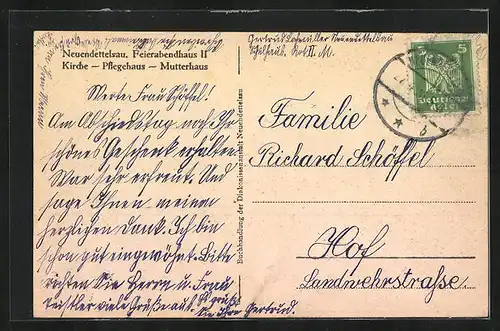 Neuendettelsau. Feierabendhaus II
Kirche — Pflegehaus — Mutterhaus
Gertrud
Neuendettelsau
II. M.
Werte Frau Schöffel!
Am Abschiedstag noch Ihr
schönes Geschenk erhalten.
War sehr erfreut. Und
sage Ihnen meinen
herzlichen Dank. Ich bin
schon gut eingewöhnt. Bitte
richten Sie Herrn u. Frau
viele Grüße aus. Es grüßt
Sie Ihre Gertrud.
Buchhandlung der Diakonissenanstalt Neuendettelsau
5 5
Deutsches
Reich
b
Familie
Richard Schöffel
Hof
Landwehrstrasse.